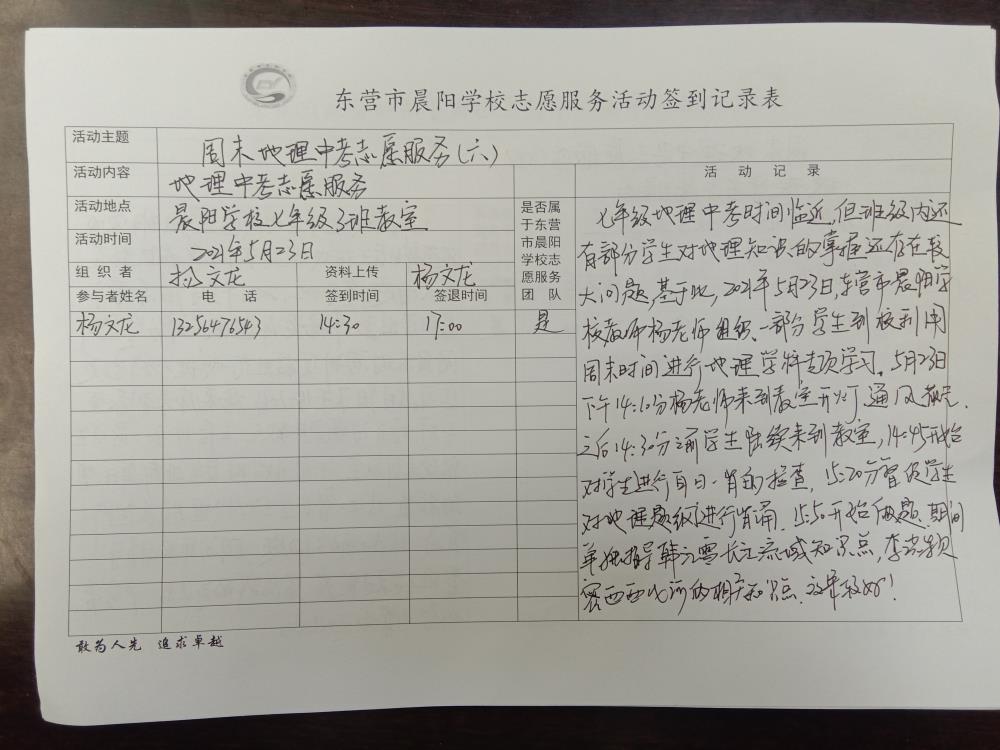 东营市晨阳学校志愿服务活动签到记录表
活动主题 周末地理中考志愿服务(六)
活动内容 地理中考志愿服务
活动地点 晨阳学校七年级3班教室
活动时间 2021年5月23日
组织者 杨文龙 资料上传 杨文龙
参与者姓名 电话 签到时间 签退时间
是否属
于东营
市晨阳
学校志
愿服务
团队
杨文龙 13256476543 14:30 17:00 是
活动记录
七年级地理中考时间临近,但班级内还
有部分学生对地理知识的掌握还存在较
大问题,基于此,2021年5月23日,东营市晨阳学
校教师杨老师组织一部分学生到校利用
周末时间进行地理学科专项学习。5月23日
下午14:10分杨老师来到教室开灯通风
之后14:30分之前学生陆续来到教室,14:45开始
对学生进行每日一背的检查,15:20分督促学生
对地理题纲进行背诵.15:50开始做题.期间
单独指导韩 雪长江流域知识点,李
西 的相关知识点.效果较好!
敢为人先 追求卓越